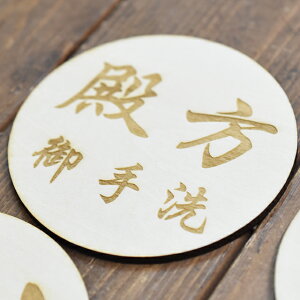 殿方
御手洗